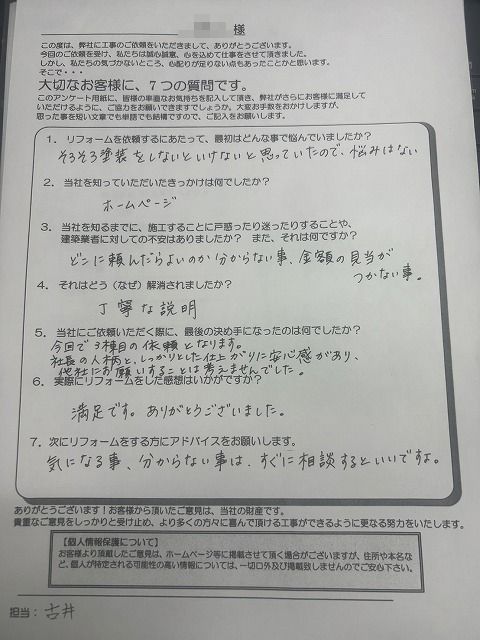 様
この度は、弊社に工事のご依頼をいただきまして、ありがとうございます。
今回のご依頼を受け、私たちは誠心誠意、心を込めて仕事をさせて頂きました。
しかし、私たちの気づかないところ、心配りが足りない点もあったことかと思います。
そこで・・・
大切なお客様に、7つの質問です。
このアンケート用紙に、皆様の率直なお気持ちを記入して頂き、弊社がさらにお客様に満足して
いただけるように、ご協力をお願いできますでしょうか。大変お手数をおかけしますが、
思った事を短い文章でも単語でも結構ですので、ご記入をお願いします。
1. リフォームを依頼するにあたって、最初はどんな事で悩んでいましたか?
そろそろ塗装をしないといけないと思っていたので、悩みはない
2. 当社を知っていただいたきっかけは何でしたか?
ホームページ
3. 当社を知るまでに、施工することに戸惑ったり迷ったりすることや、
建築業者に対しての不安はありましたか? また、それは何ですか?
どこに頼んだらよいのか分からない事、金額の見当が
つかない事。
4. それはどう(なぜ)解消されましたか?
丁寧な説明
5. 当社にご依頼いただく際に、最後の決め手になったのは何でしたか?
今回で3棟目の依頼となります。
社長の人柄と、しっかりとした仕上がりに安心感があり、
他社にお願いすることは考えませんでした。
6. 実際にリフォームをした感想はいかがですか?
満足です。ありがとうございました。
7. 次にリフォームをする方にアドバイスをお願いします。
気になる事、分からない事は、すぐに相談するといいですよ。
ありがとうございます!お客様から頂いたご意見は、当社の財産です。
貴重なご意見をしっかりと受け止め、より多くの方々に喜んで頂ける工事ができるように更なる努力をいたします。
【個人情報保護について】
お客様より頂戴したご意見は、ホームページ等に掲載させて頂く場合がございますが、住所や本名な
ど、個人が特定される可能性の高い情報については、一切口外及び掲載致しませんのでご安心下さい。
担当:古井